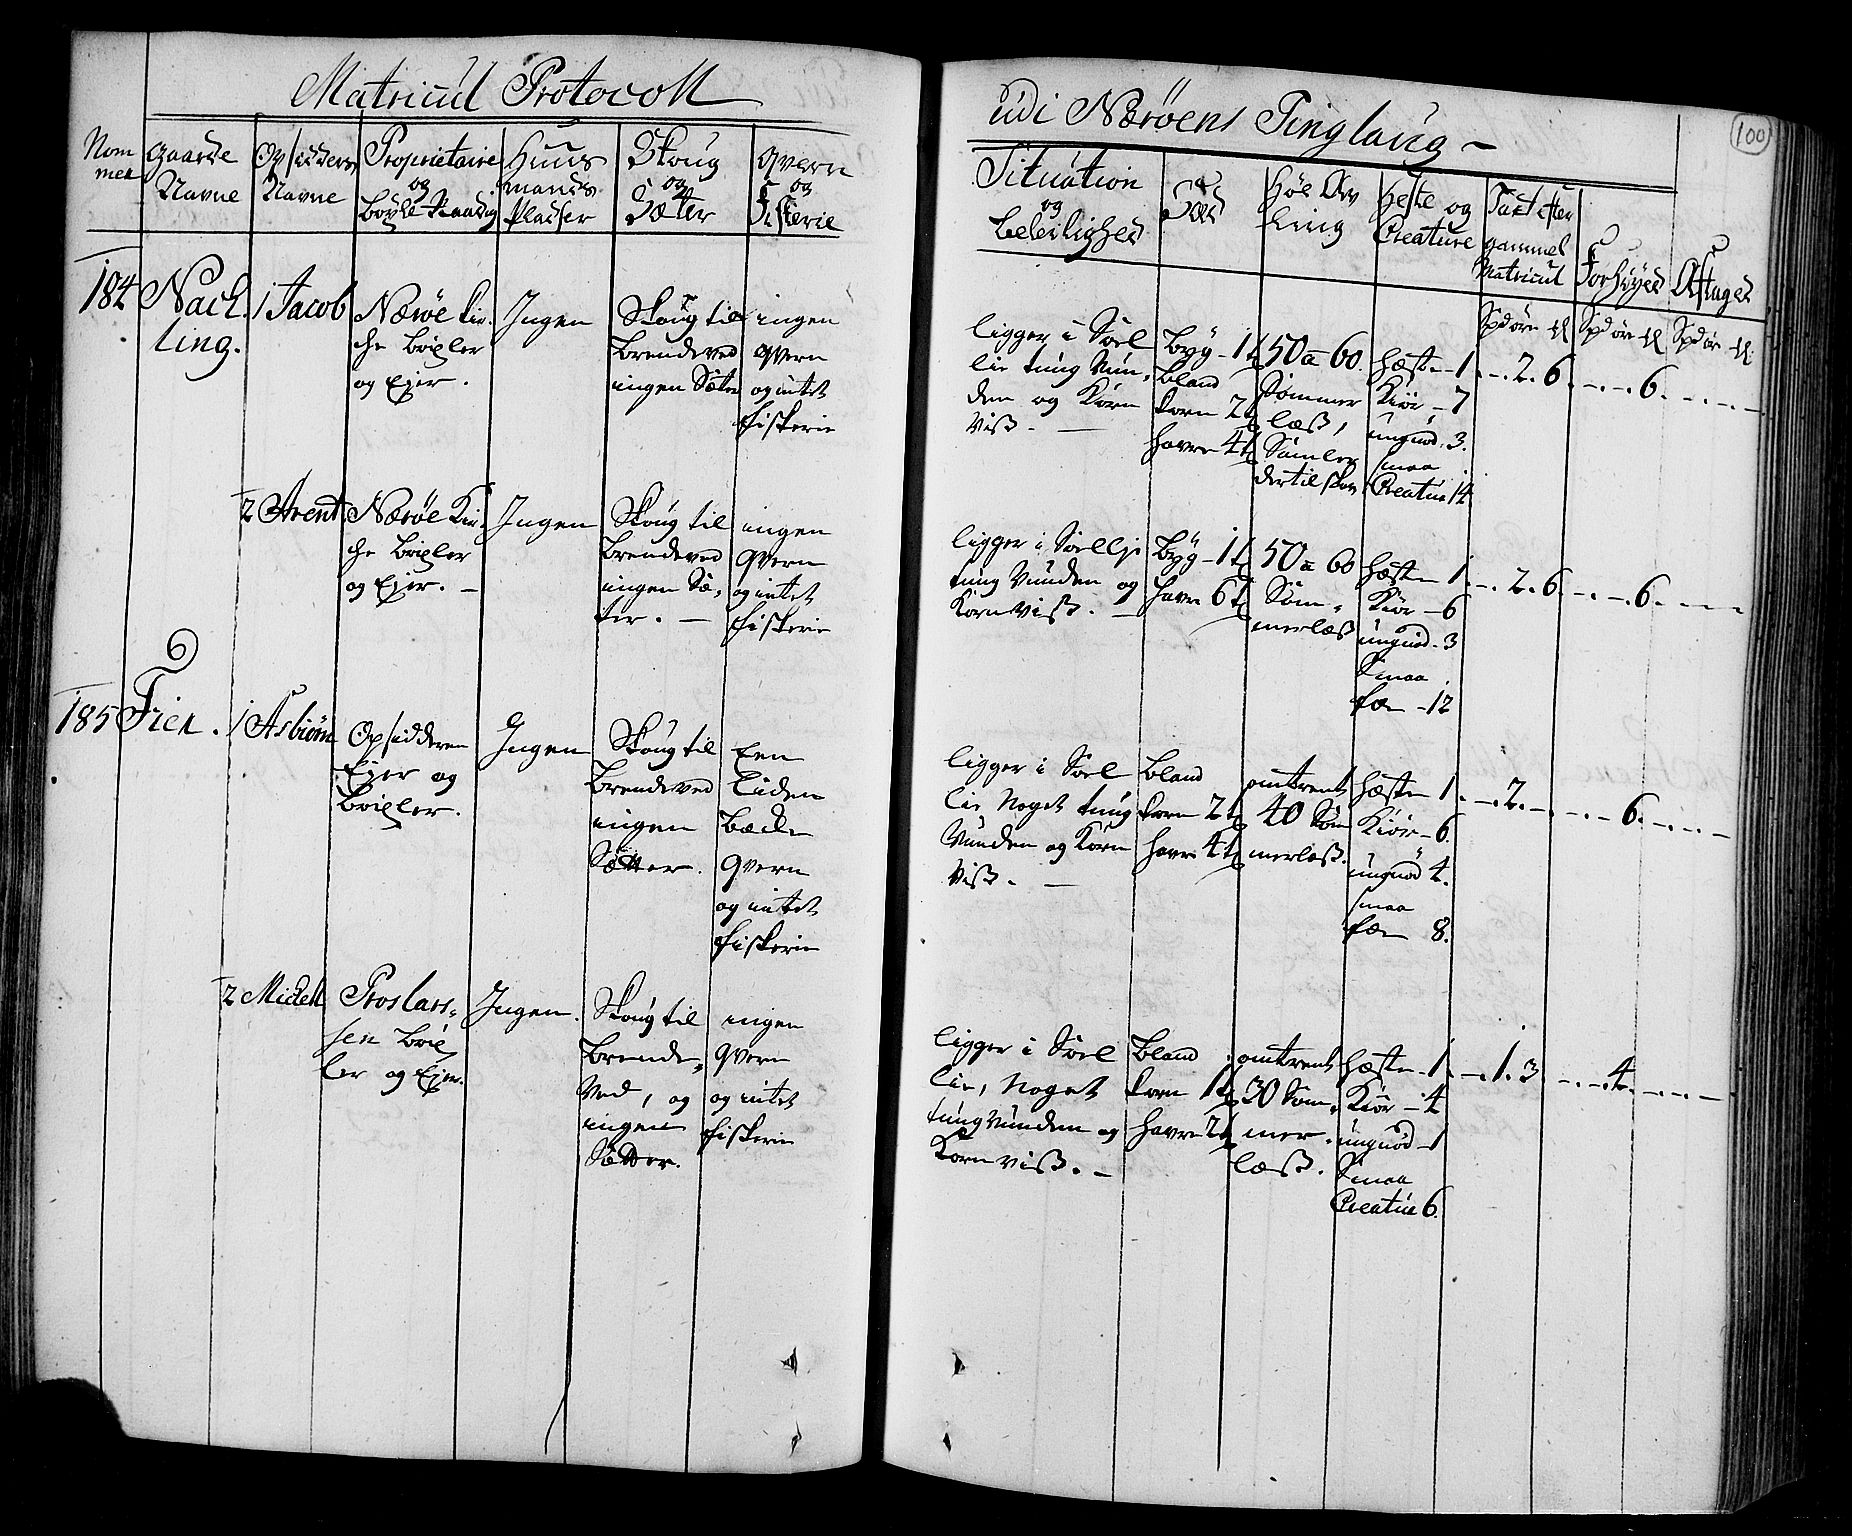 Matricul Protocoll
udi Nærøens Tinglaug
100
Nom
mer
Gaarde
Navne
Opsidders
Navne
Proprietaire
og
Böxle Raadig
Huus
mands
Pladser
Skoug
og
Sætter
Qvern
og
Fiskerie
Situation
og
beleilighed
Sæd
Høe Av
ling
Heste og
Creature
Taxt efter
gammel
Matricul
Forhöyed
Aftaged
Spd ör
Spd ör
Spd ör
184 Nach
ling.
1 Jacob
Nærøe Kir
che böxler
og Ejer.
Ingen
Skoug til
brendeved
ingen Sæter
ingen
qvern
og intet
fiskerie
ligger i Soel
lie tung Vun
den og Korn
Viß.
byg - 1 t
bland
korn 2 t
havre 4 t
50 a 60.
Sommer
læß,
Samler
der til skov
hæste - 1
Kiör - 7
ungnöd 3.
smaa
Creatur 14
- 2. 6.
- - 6.
2 Arent
Nærøe Kir
che böxler
og Ejer.
Ingen
Skoug til
brendeved
ingen Sæ
ter.
ingen
qvern
og intet
fiskerie
ligger i Soellje
tung Vunden og
Korn viß.
byg - 1 t
havre 6 t
50 a 60
Som
merlæß
hæste 1
Kiör - 6
ungnöd - 3
Smaa
fæe - 12
- 2. 6
- - 6.
185 Fier.
1 Asbiörn
Opsidderen
Ejer og
böxler.
Ingen
Skoug til
brendeved
ingen
Sætter.
Een
liden
bæcke
qvern
og intet
fiskerie
ligger i Soel
lie Noget tung
Vunden og Korn
viß.
bland
korn 2 t
havre 4 t
omtrent
40 Som
merlæß.
hæste 1
Kiör - 6
ungnöd 4.
smaa
fæe 8.
- 2. -
- - 6.
2 Mickell
Troslars
sen böx
ler og Ejer.
Ingen.
Skoug til
brende
Ved, og
ingen
Sætter.
ingen
qvern
og intet
fiskerie
ligger i Soel
lie, Noget
tung Vunden og
Korn viß.
bland
korn 1 t
havre 2 t
omtrent
30 Som
mer
læß.
hæste - 1
Kiör - 4
ungnöd - 1
Smaa
Creatur 6.
- 1. 3
- - 4.